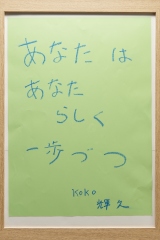 あなたは
あなた
らしく
一歩づつ
KOKO
輝久